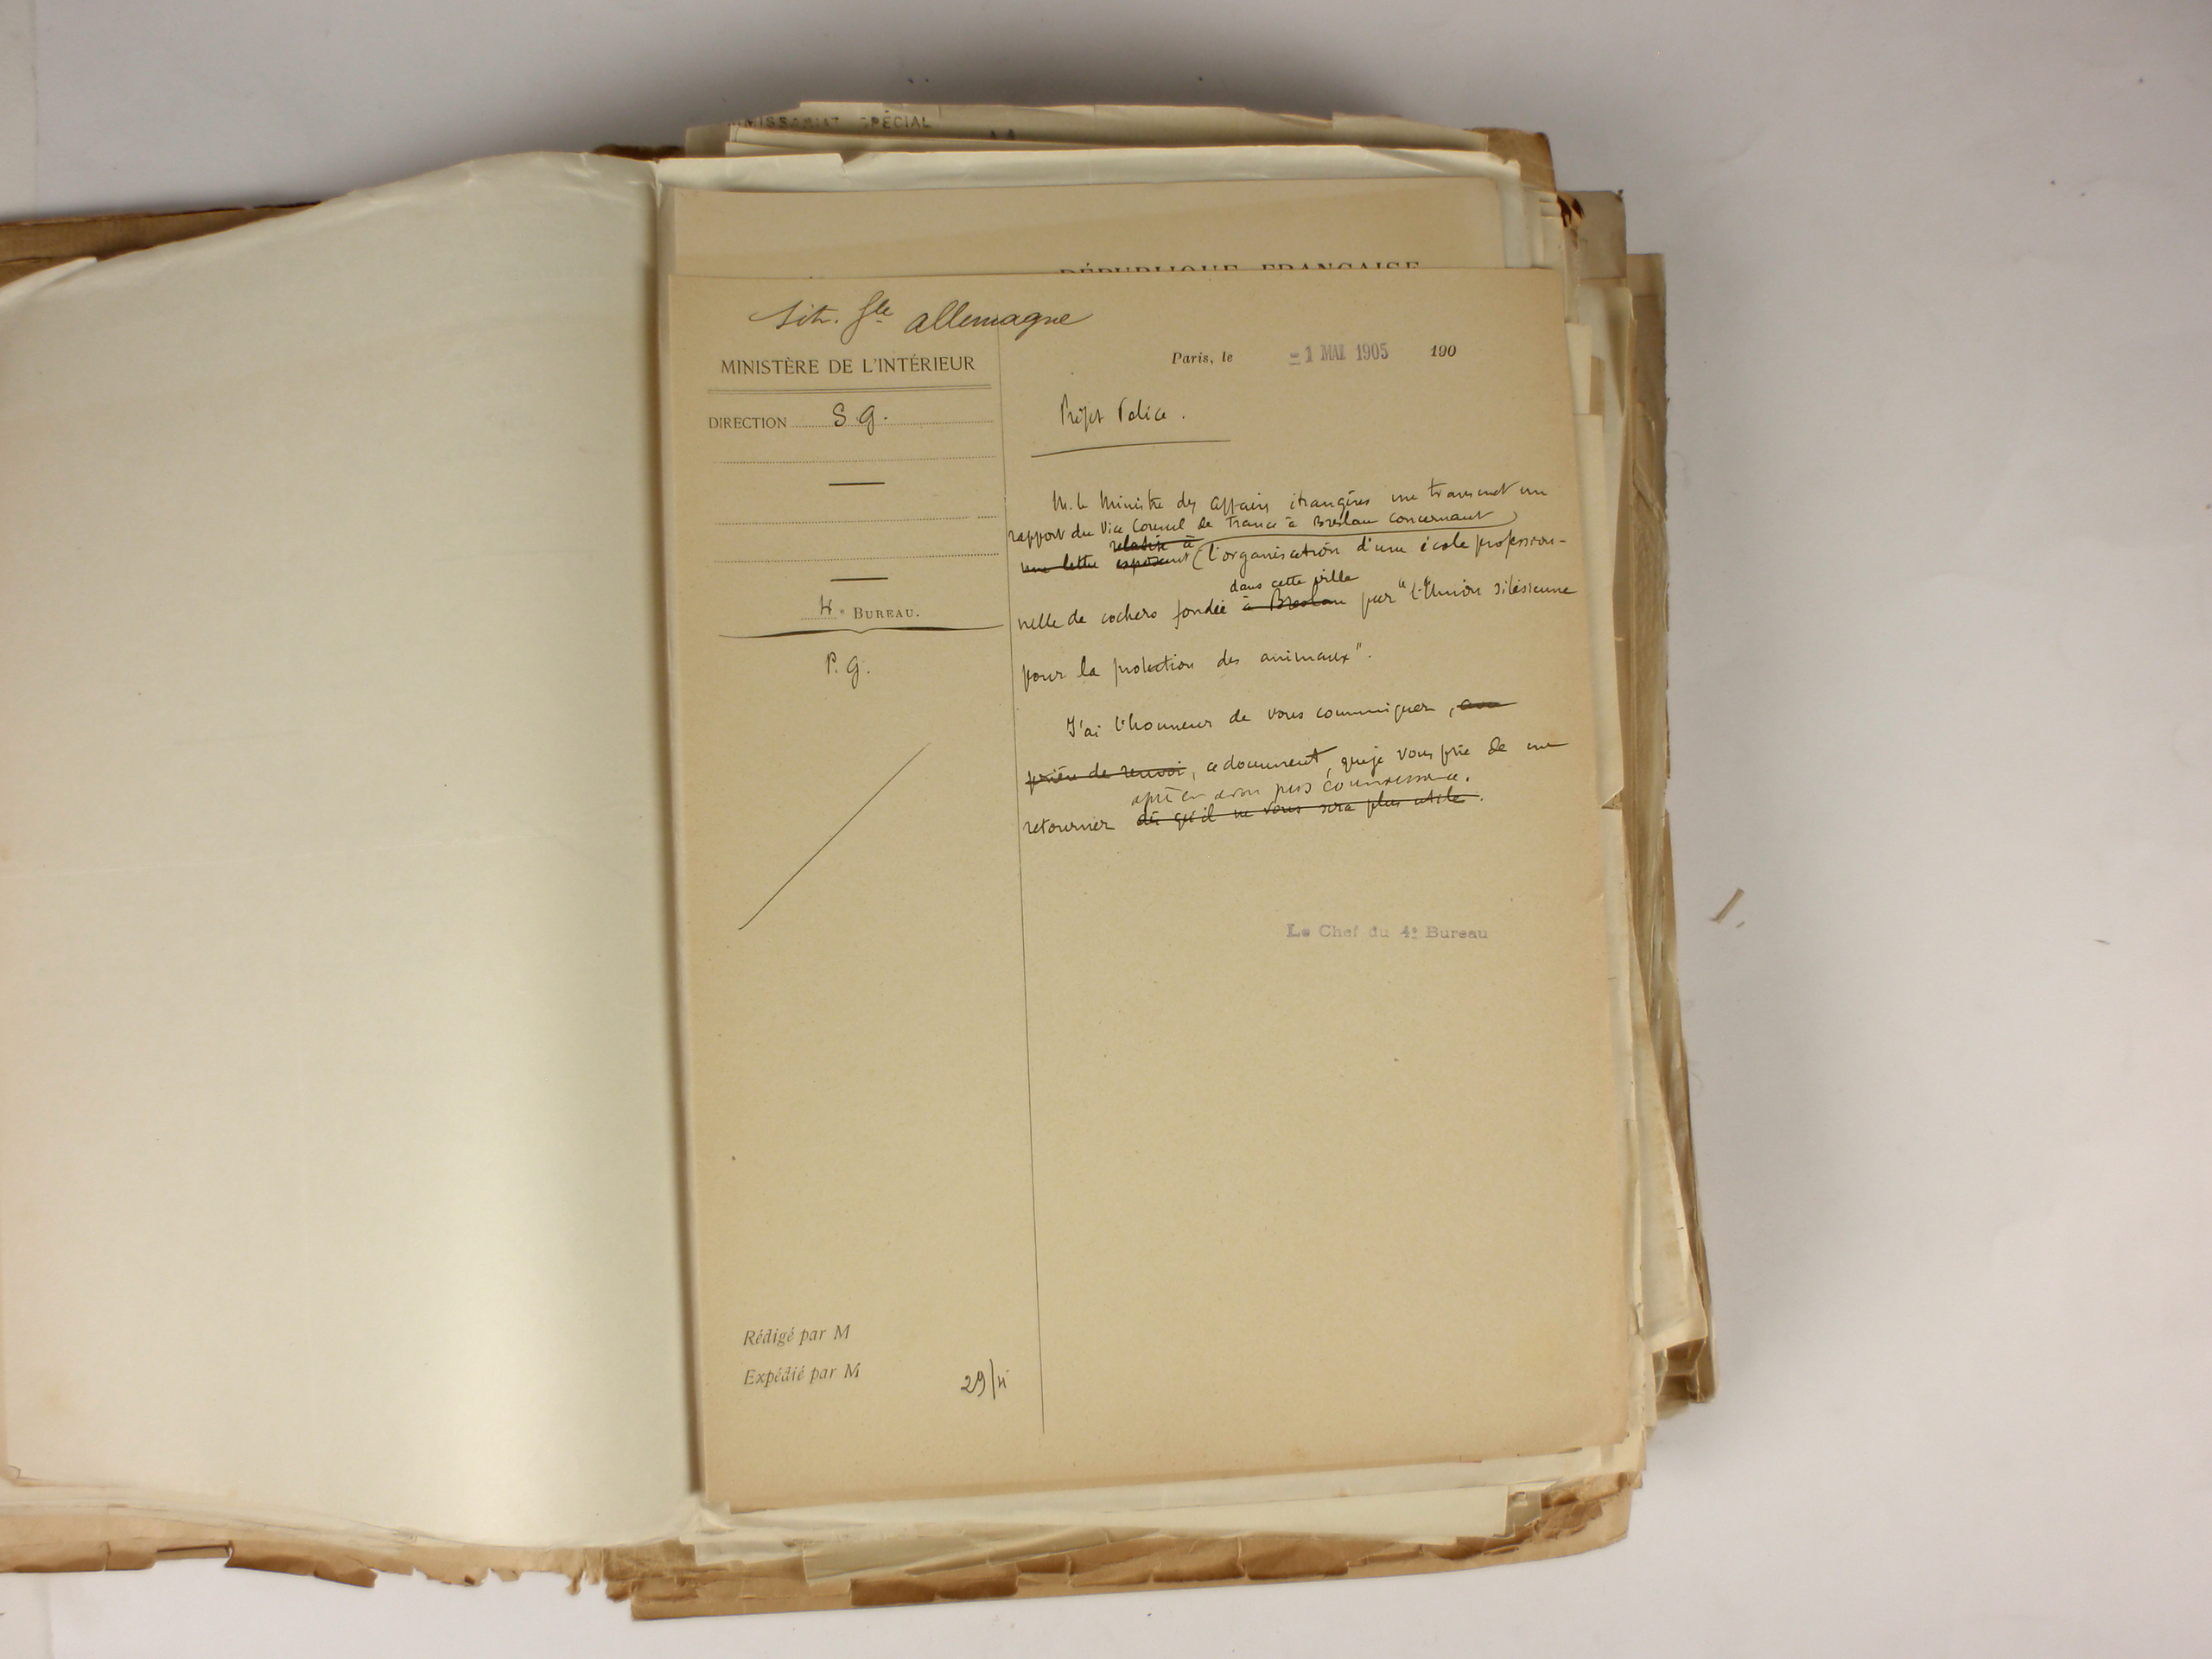 MMISSARIAT SPÉCIAL
RÉPUBLIQUE FRANÇAISE
Sit. Gle allemagne
MINISTÈRE DE L'INTÉRIEUR
DIRECTION S G.
4e BUREAU.
P. G.
Paris, le -1 MAI 1905 190
Préfet Police.
M. le Ministre des Affaires étrangères me transmet un
rapport du Vice Consul de France à Breslau concernant
relatif à
une lettre exposant (l'organisation d'une école profession-
dans cette ville
nelle de cochers fondée à Breslau par "l'Union silésienne
pour la protection des animaux".
J'ai l'honneur de vous communiquer, avec
prière de renvoi, ce document, que je vous prie de me
après en avoir pris connaissance.
retourner dès qu'il ne vous sera plus utile.
Le Chef du 4e Bureau
Rédigé par M
Expédié par M
29/4